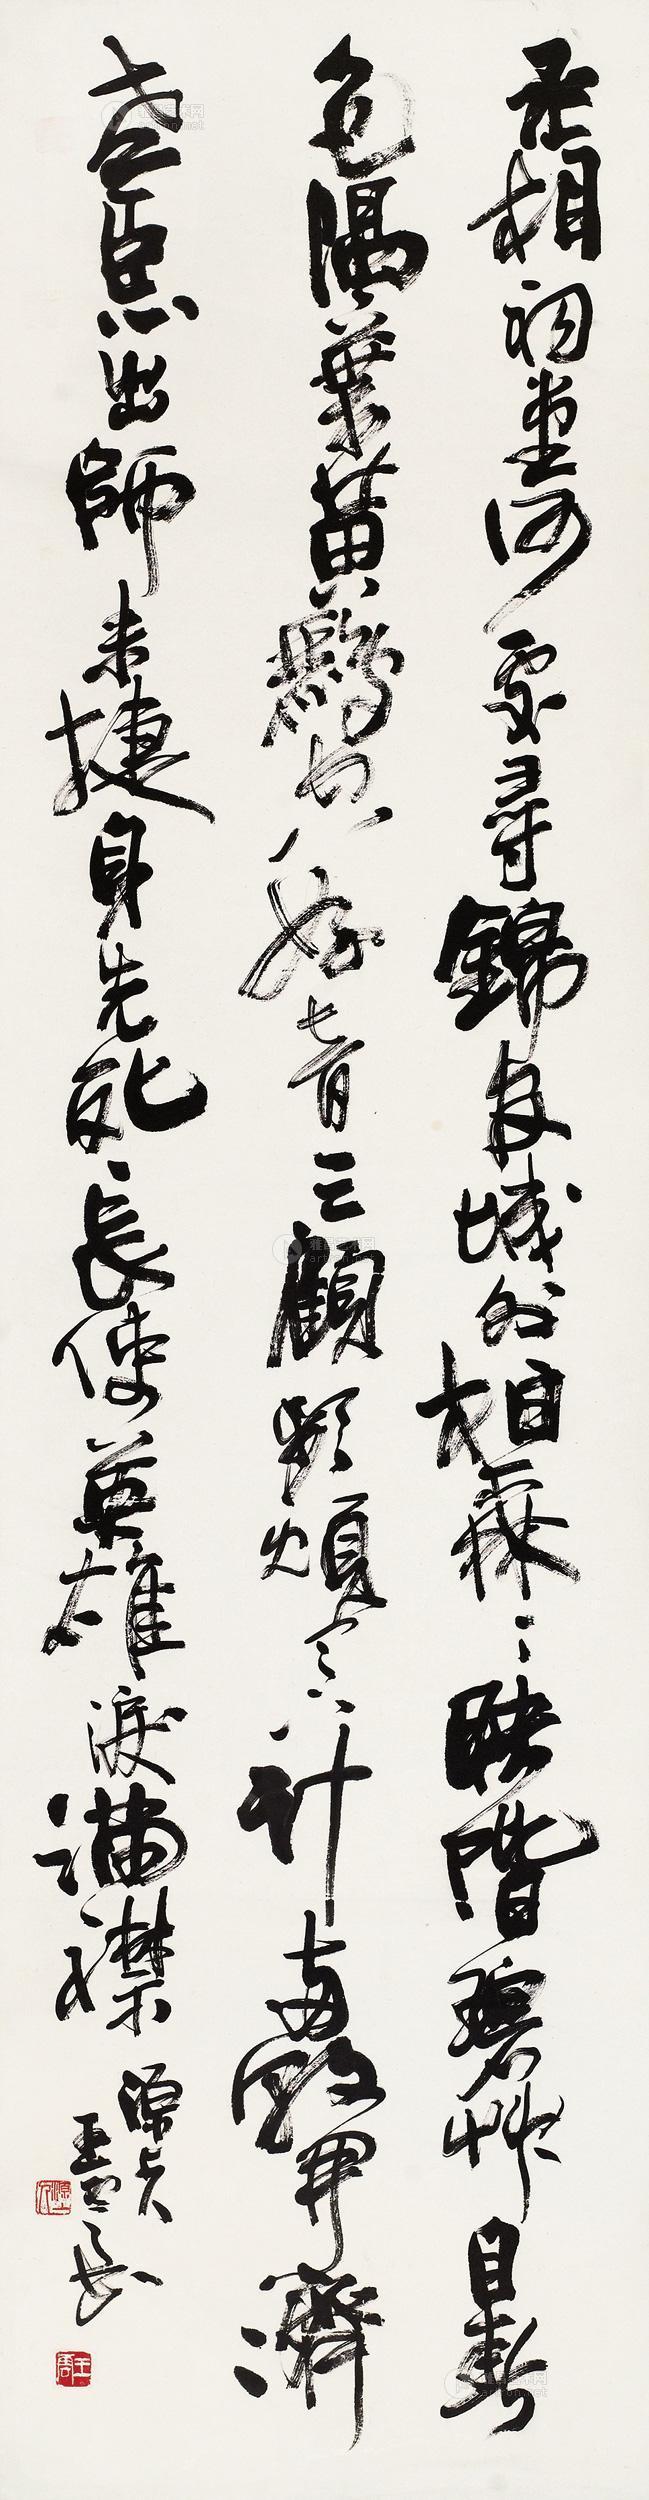 丞相祠堂何處尋錦官城外柏森〻映階碧草自春
色隔葉黃鸝空好音三顧頻煩天下計兩朝開濟
老臣心出師未捷身先死長使英雄淚滿襟